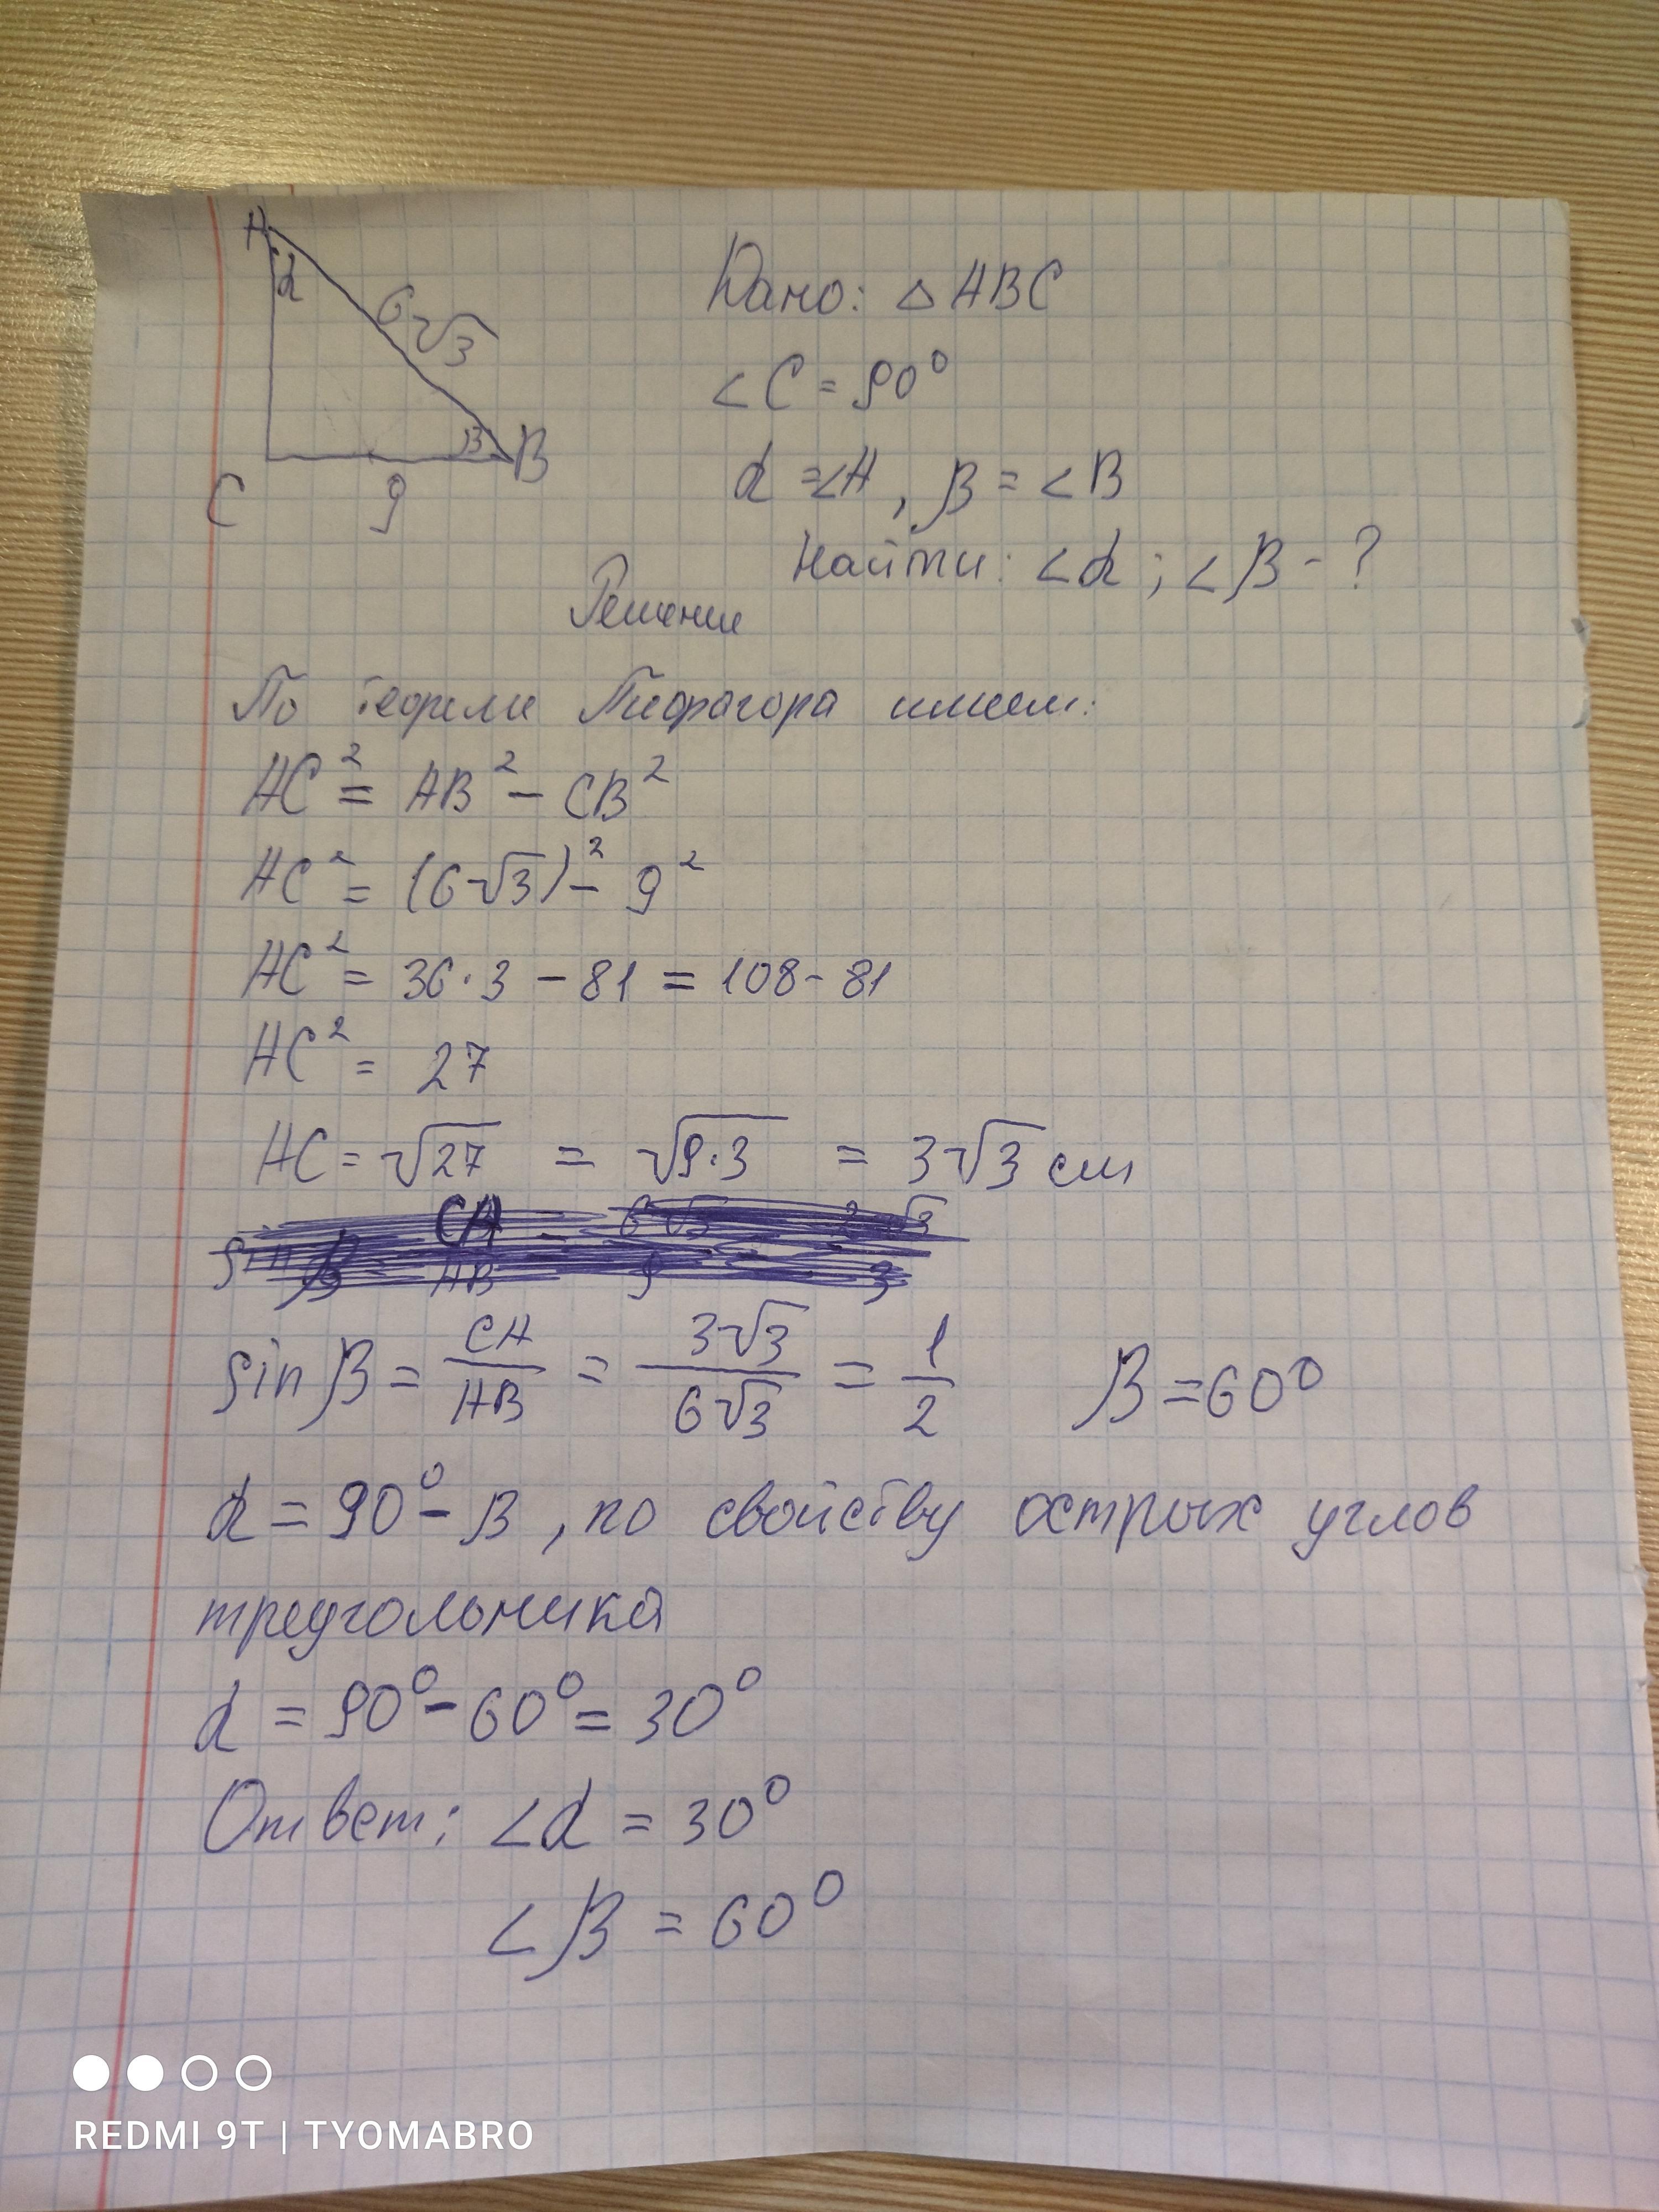 A
α
6√3
β B
C 9
Дано: △ ABC
∠C = 90°
α = ∠A, β = ∠B
Найти: ∠α; ∠β - ?
Решение
По теореме Пифагора имеем:
AC² = AB² - CB²
AC² = (6√3)² - 9²
AC² = 36·3 - 81 = 108 - 81
AC² = 27
AC = √27 = √9·3 = 3√3 см
sin β = CA/AB = 3√3/6√3 = 1/2 β = 60°
α = 90° - β, по свойству острых углов
треугольника
α = 90° - 60° = 30°
Ответ: ∠α = 30°
∠β = 60°
REDMI 9T | TYOMABRO